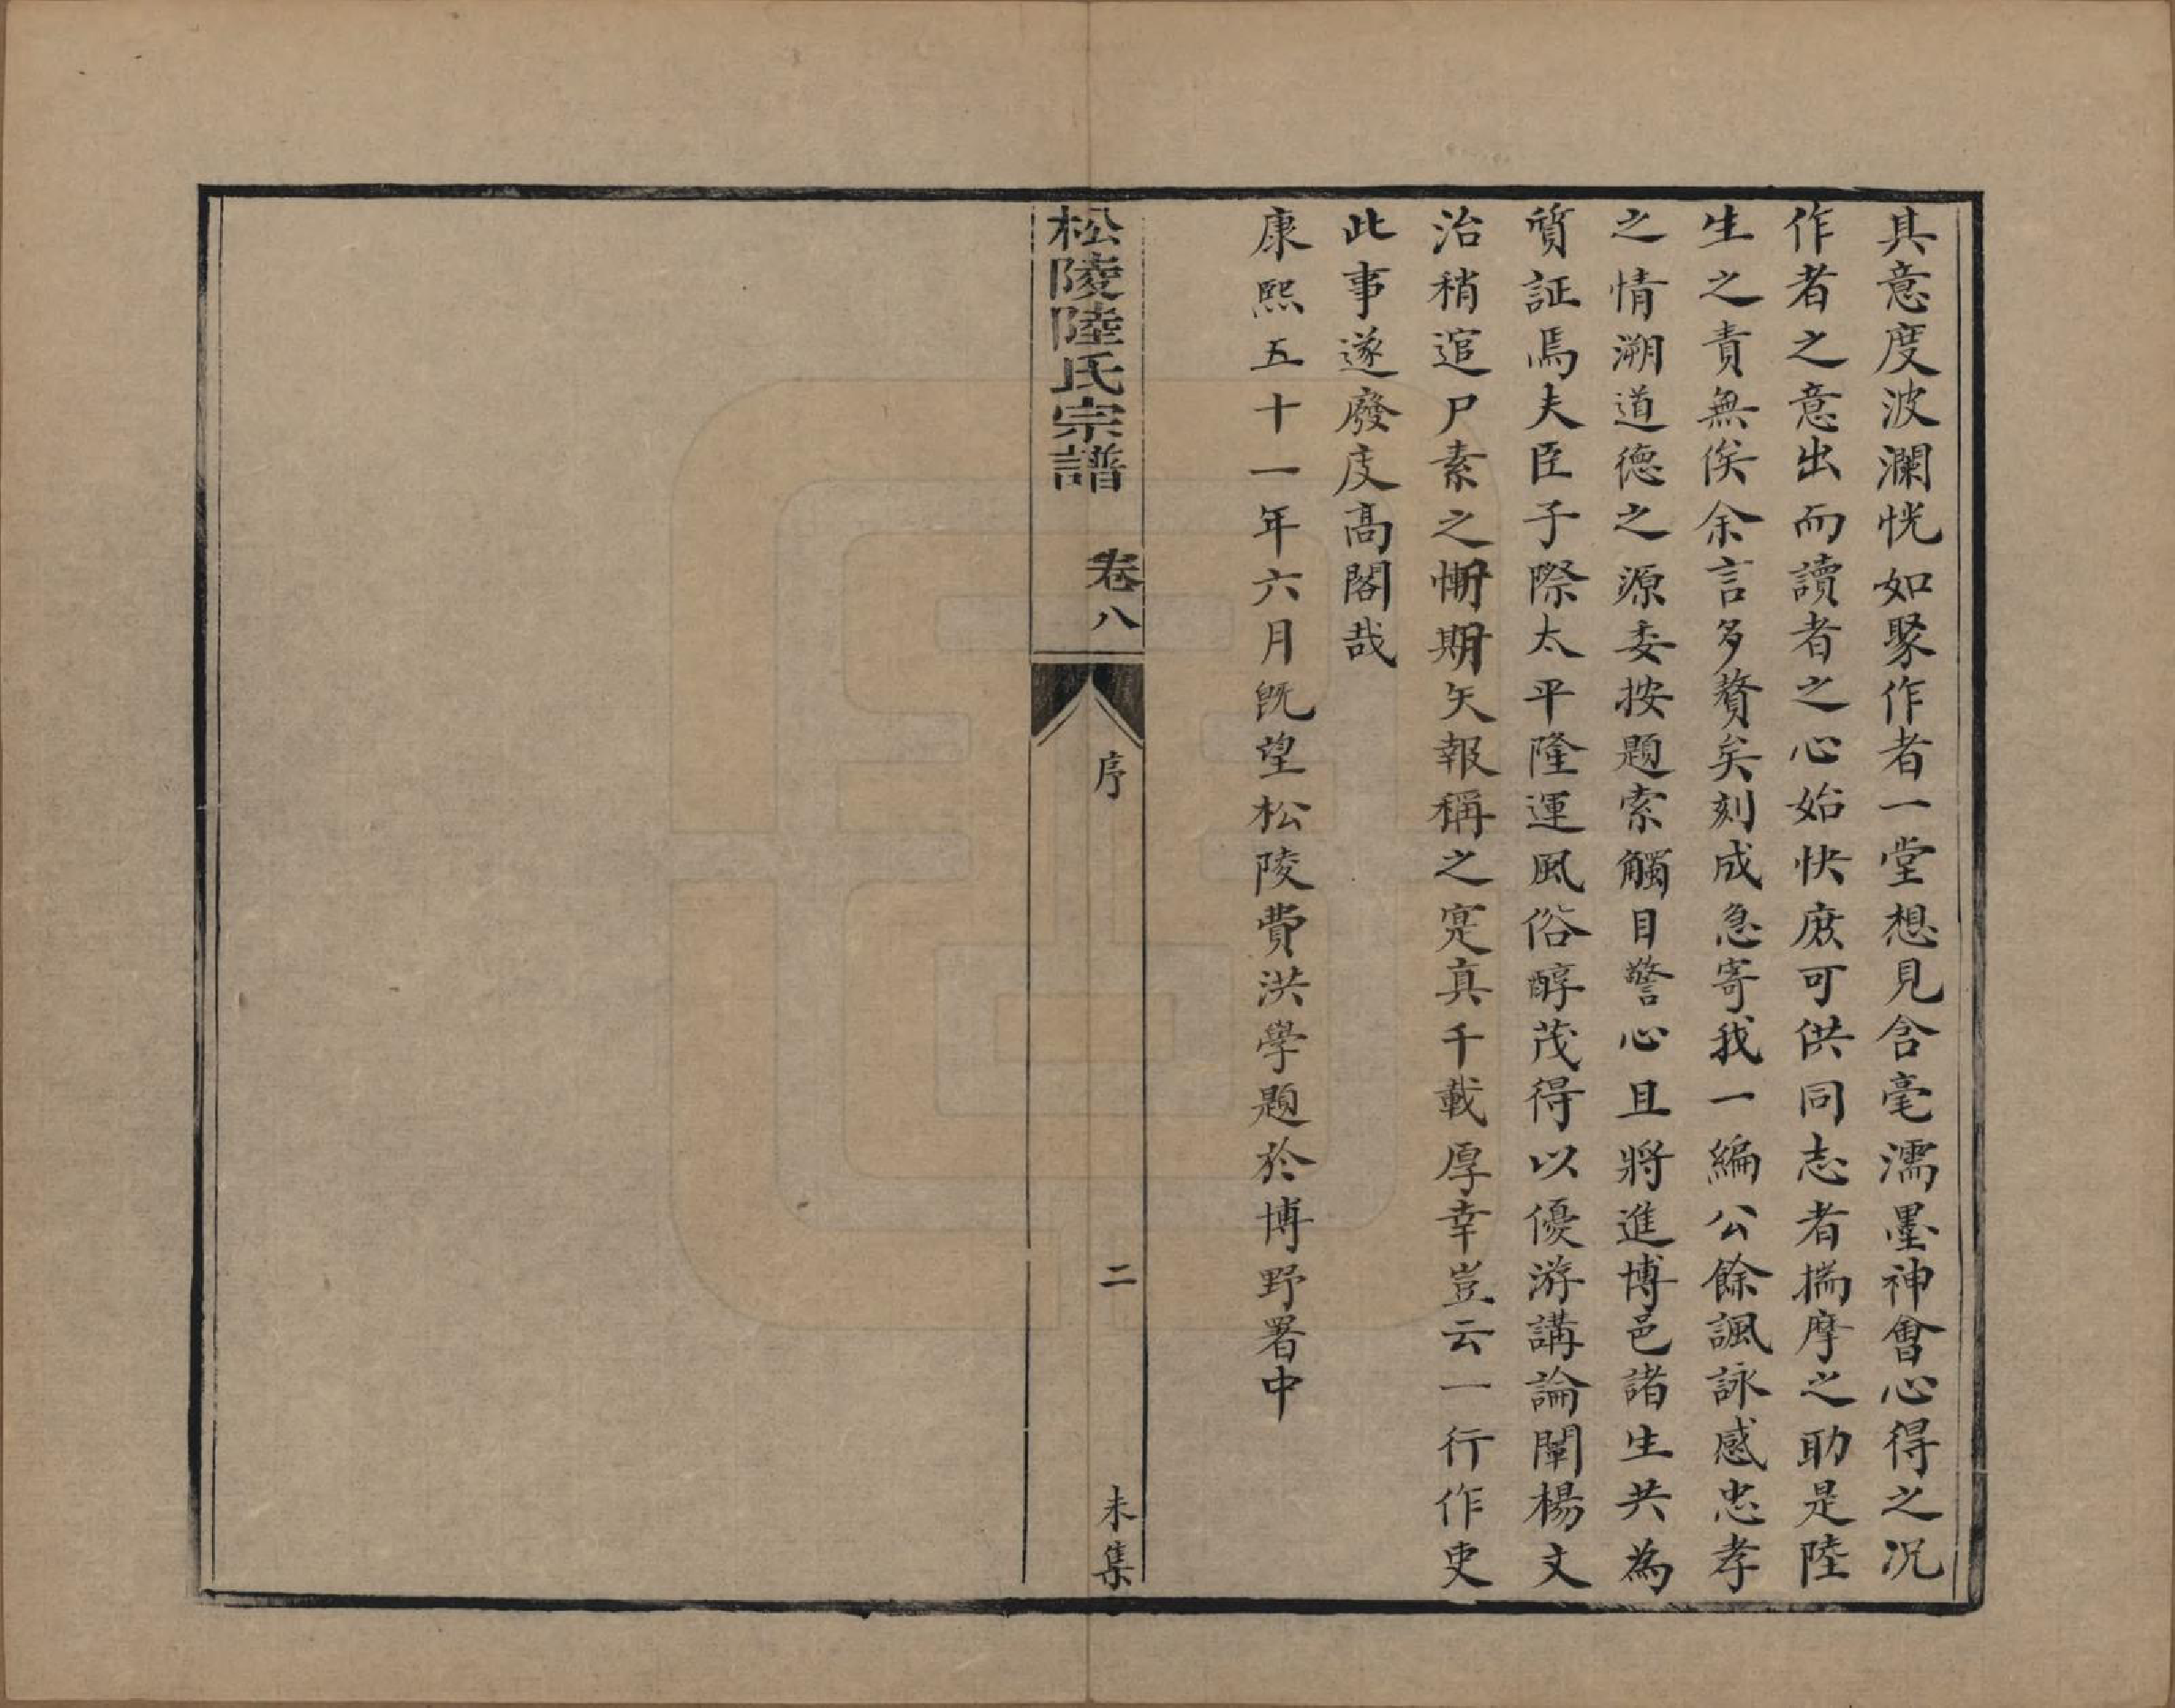 其意度波瀾恍如聚作者一堂想見含毫濡墨神會心得之況
作者之意出而讀者之心始快庶可供同志者揣摩之助是陸
生之責無俟余言多贅矣刻成急寄我一編公餘諷詠感忠孝
之情溯道德之源委按題索觸目警心且將進博邑諸生共為
質証焉夫臣子際太平隆運風俗醇茂得以優游講論闡楊文
治稍逭尸素之慚期矢報稱之寔真千載厚幸豈云一行作吏
此事遂廢庋高閣哉
康熙五十一年六月旣望松陵費洪學題於博野署中
松陵陸氏宗譜 卷八 序 二 未集